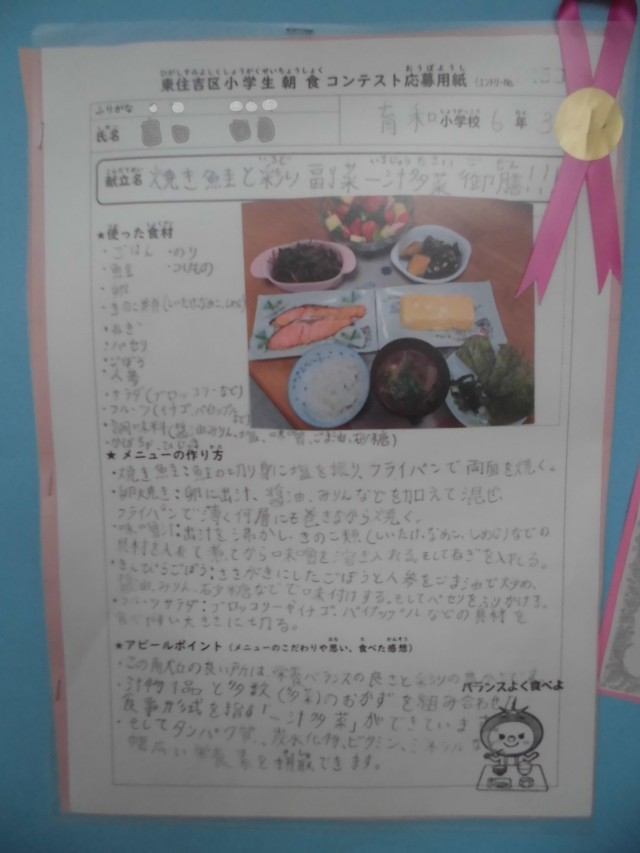 ひがしすみよしくしょうがくせいちょうしょく おうぼようし
東住吉区小学生朝食コンテスト応募用紙 (エントリーNo.
ふりがな
氏名 育和小学校 6年 3
献立名 焼き鮭と彩り副菜 一汁多菜 御膳!!
★使った食材
・ごはん ・のり
・鮭 ・つけもの
・卵
・きのこ類(しいたけ、なめこ、しめじ)
・ねぎ
・パセリ
・ごぼう
・人参
・サラダ(ブロッコリーなど)
・フルーツ(イチゴ、パイナップルなど)
・調味料(醤油、みりん、塩、味噌、ごま油、砂糖)
・かぼちゃ、ひじき
★メニューの作り方
・焼き鮭:鮭の切り身に塩を振り、フライパンで両面を焼く。
・卵焼き:卵に出汁、醤油、みりんなどを加えて混ぜ、
フライパンで薄く何層にも巻きながら焼く。
・味噌汁:出汁を沸かし、きのこ類(しいたけ、なめこ、しめじ)などの
具材を入れて煮てから味噌を溶き入れる。そしてねぎを入れる。
・きんぴらごぼう:ささがきにしたごぼうと人参をごま油で炒め、
醤油、みりん、砂糖などで味付けする。そしてパセリをふりかける。
・フルーツサラダ:ブロッコリーやイチゴ、パイナップルなどの具材を
食べやすい大きさに切る。
★アピールポイント(メニューのこだわりや思い、食べた感想)
・この献立の良い所は栄養バランスの良さと彩りの
・汁物1品と多数(多菜)のおかずを組み合わせ
食事形式を指す「一汁多菜」ができていま
・そしてタンパク質、炭水化物、ビタミン、ミネラル
幅広い栄養素を摂取できます。
バランスよく食べよ